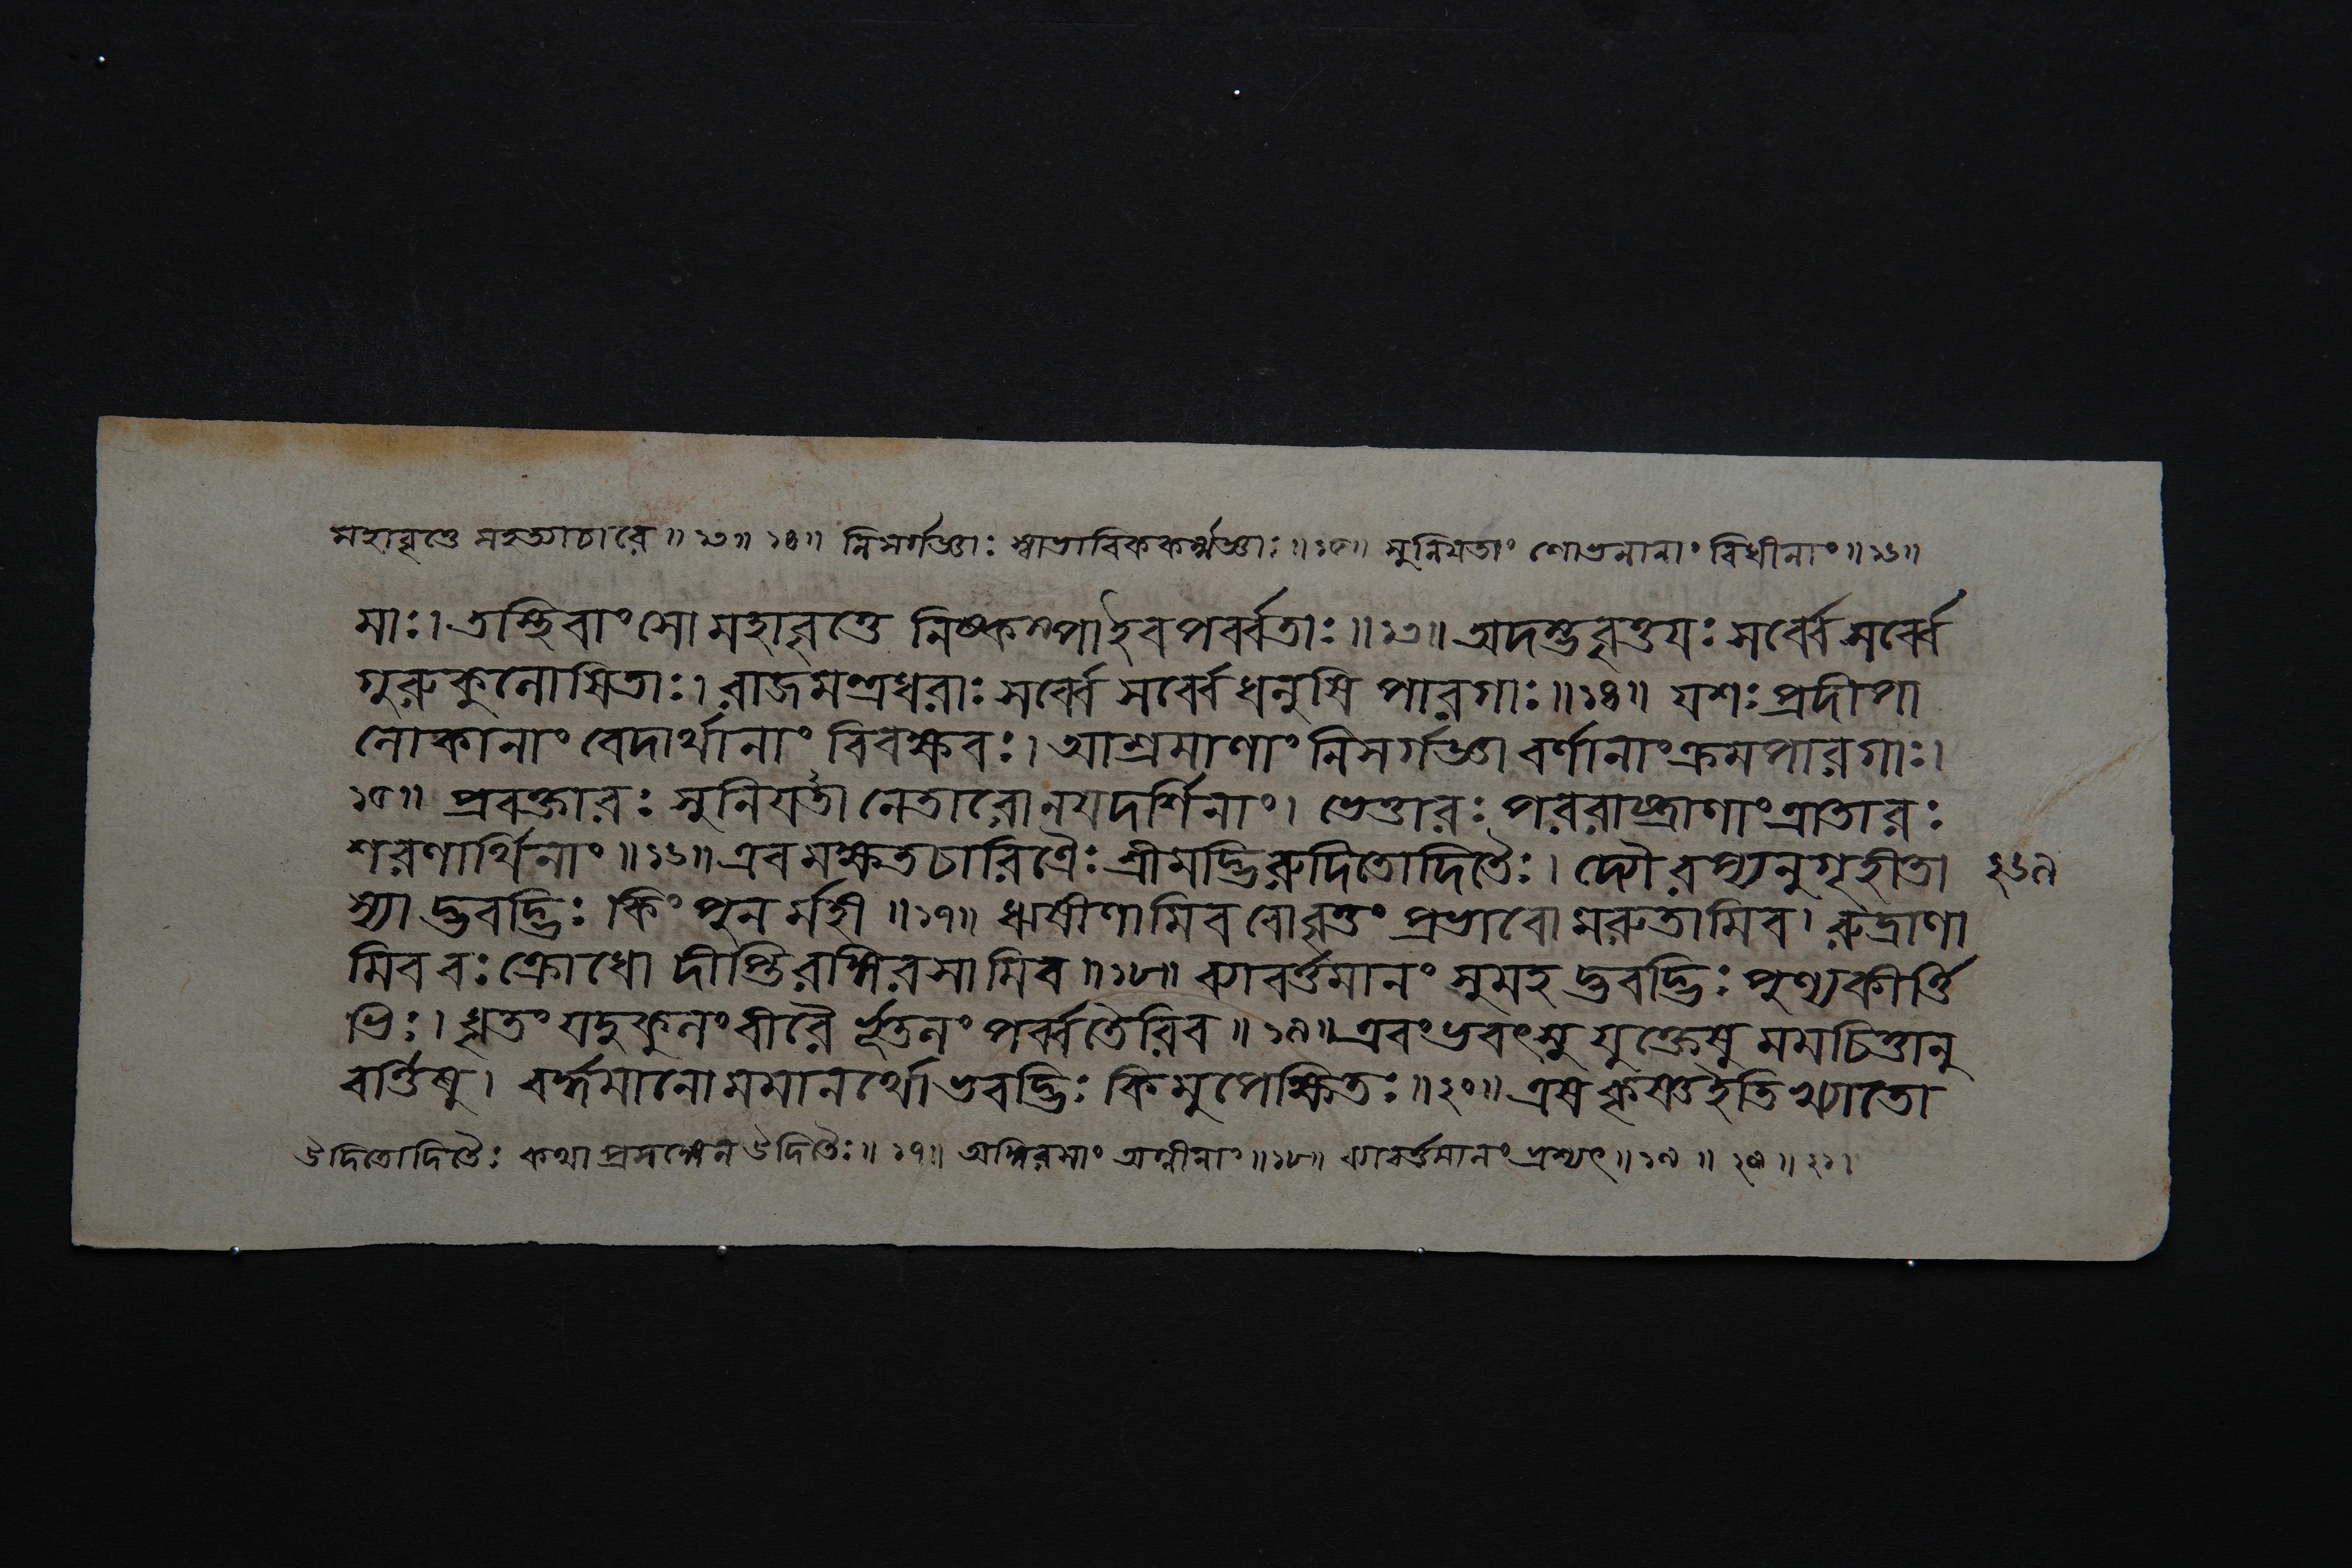 মহাবৃত্তে মহত্যাচারে ॥ ১৩॥ ১৪॥ নিসর্গজ্ঞাঃ স্বাভাবিককর্ম্মজ্ঞাঃ ॥১৫॥ সুনিয়তাং শোভনানাং বিধীনাং ॥১৬॥
মাঃ। তস্থিবাংসো মহাবৃত্তে নিষ্কম্পা ইব পর্ব্বতাঃ ॥১৩॥ অদম্ভবৃত্তয়ঃ সর্ব্বে সর্ব্বে
গুরুকুলোষিতাঃ। রাজমন্ত্রধরাঃ সর্ব্বে সর্ব্বে ধনুষি পারগাঃ ॥১৪॥ যশঃ প্রদীপা
লোকানাং বেদার্থানাং বিবক্ষবঃ। আশ্রমাণাং নিসর্গজ্ঞা বর্ণানাং ক্রমপারগাঃ।
১৫॥ প্রবক্তারঃ সুনিয়তাং নেতারো নয়দর্শিনাং। ভেত্তারঃ পররাষ্ট্রাণাং ত্রাতারঃ
শরণার্থিনাং ॥১৬॥ এবমক্ষতচারিত্রৈঃ শ্রীমদ্ভিরুদিতোদিতৈঃ। দ্যৌরপ্যনুগৃহীতা ২৬৯
স্যাদ্ভবদ্ভিঃ কিং পুনর্মহী ॥১৭॥ ঋষীণামিব বো বৃত্তং প্রভাবো মরুতামিব। রুদ্রাণা
মিব বঃ ক্রোধো দীপ্তিরঙ্গিরসামিব ॥১৮॥ ব্যাবর্ত্তমানং সুমহদ্ভবদ্ভিঃ পুণ্যকীর্ত্তি
ভিঃ। ধৃতং যদুকুলং বীরৈর্ভূতলং পর্ব্বতৈরিব ॥ ১৯॥ এবং ভবৎসু যুক্তেষু মম চিত্তানু
বর্ত্তিষু। বর্ত্তমানো মমানর্থো ভবদ্ভিঃ কিমুপেক্ষিতঃ ॥২০॥ এষ কৃষ্ণ ইতি খ্যাতো
উদিতোদিতৈঃ কথাপ্রসঙ্গেন উদিতৈঃ ॥ ১৭॥ অঙ্গিরসাং অগ্নীনাং ॥১৮॥ ব্যাবর্ত্তমানং ভ্রশ্যৎ ॥১৯ ॥ ২০ ॥ ২১।